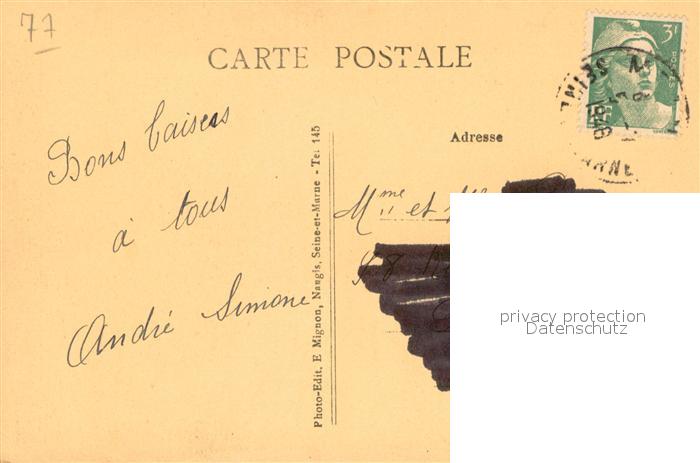 77
CARTE POSTALE
3F
1946
Adresse
Bons baisers
à tous
André Simone
Photo-Edit. E Mignon, Nangis, Seine-et-Marne - Tel 145
Mme et
privacy protection
Datenschutz